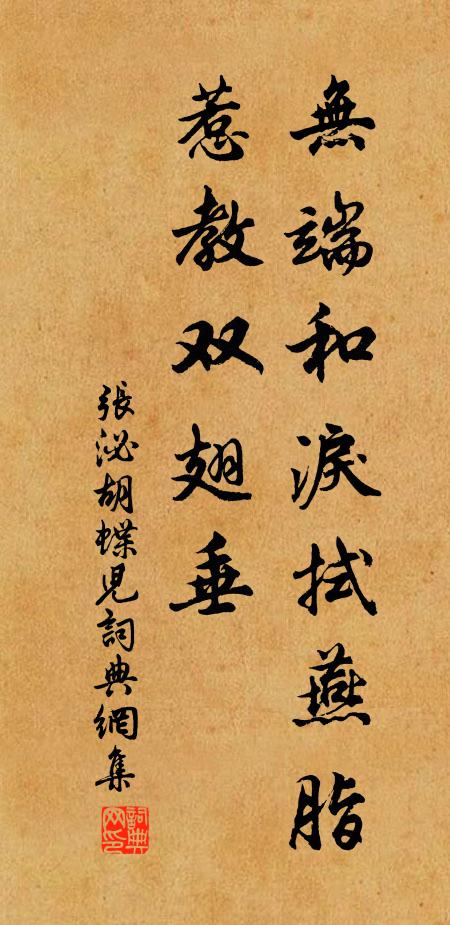 無端和淚拭燕脂
惹教双翅垂
張泌胡蝶兒詞典網集
詞典网印